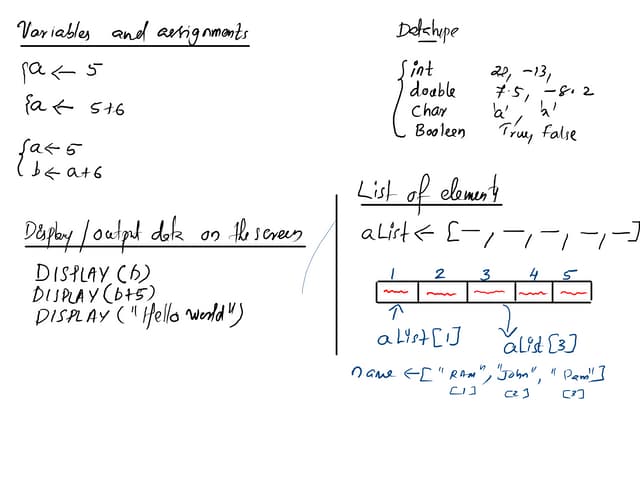 Variables and assignments
{a ← 5
{a ← 5+6
{a ← 5
b ← a+6
Display/output data on the screen
DISPLAY(b)
DISPLAY(b+5)
DISPLAY("Hello world")
Datatype
int 20, -13,
double 7.5, -8.2
Char 'a',
Booleen True, False
List of element
aList ← [—, —, —, —, —]
1 2 3 4 5
aList[1]
aList[3]
name ← ["RAM", "John", "Dam"]
[1] [2] [3]